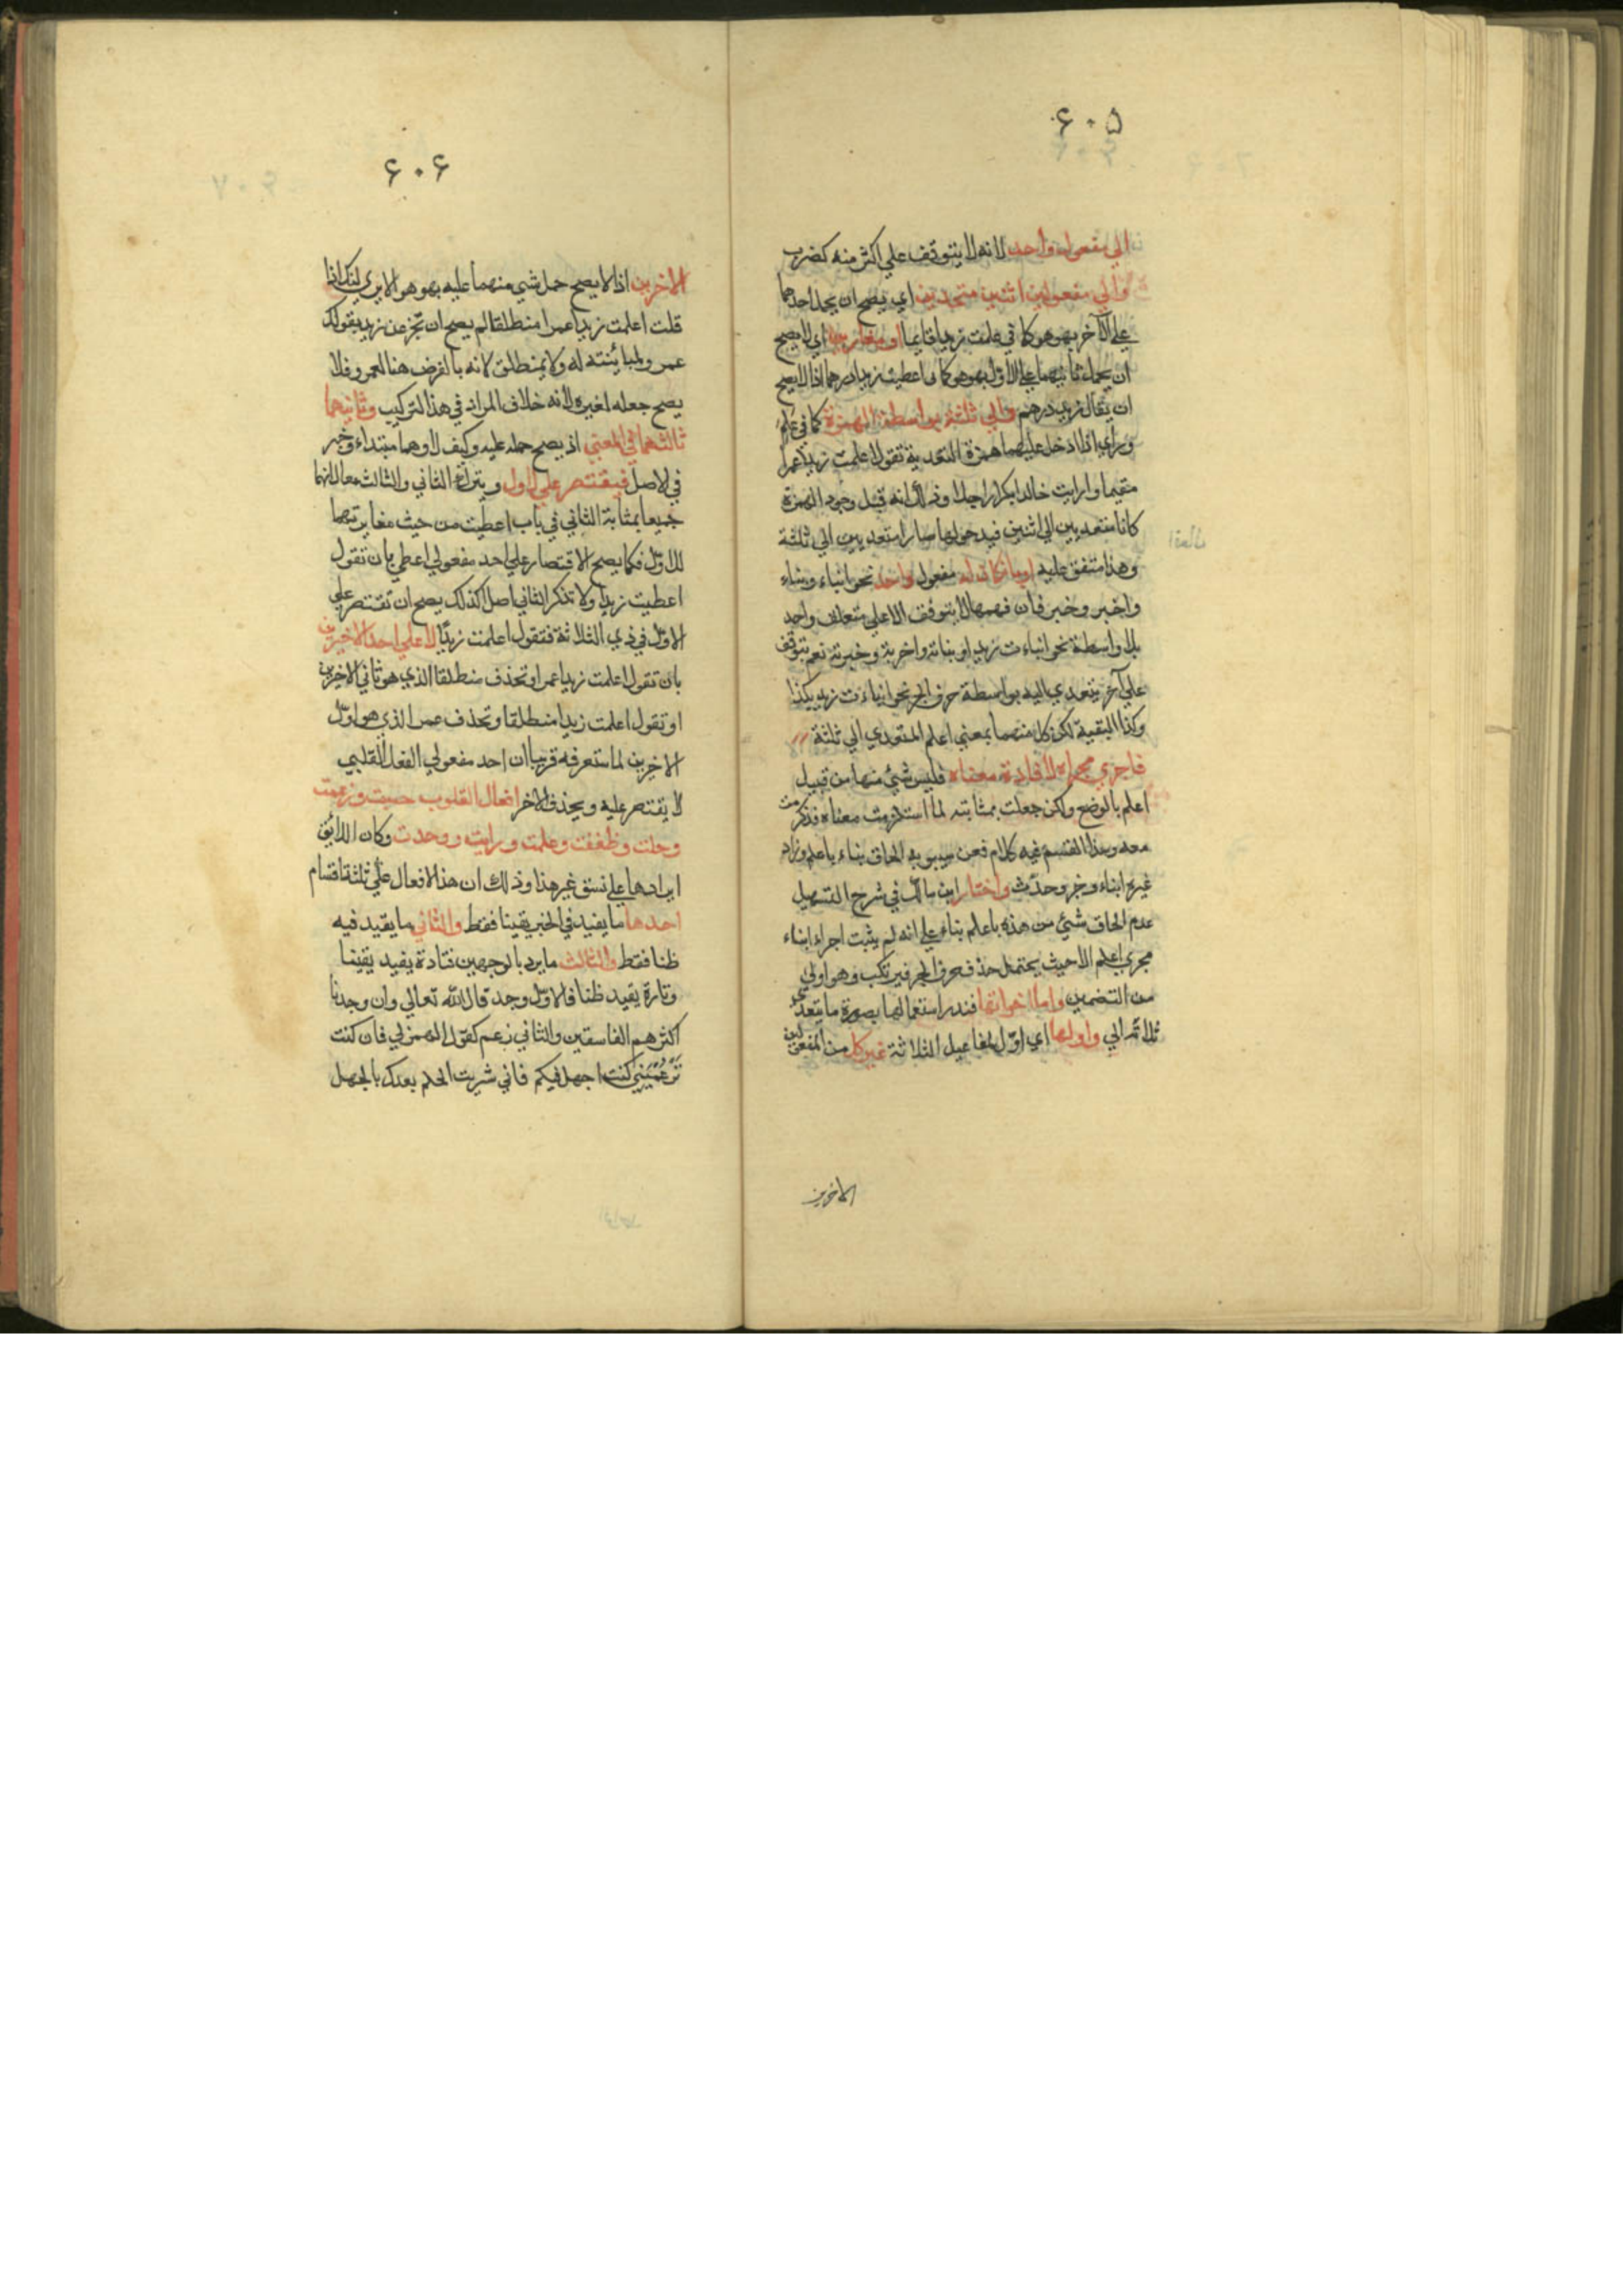 ۶۰۵
الي مفعول واحد لانه لا يتوقف علي اكثر منه كضرب
والي مفعولين اثنين متحدين اي يصح ان يحمل احدهما
علي الآخر بهو هو كما في علمت زيدا قايما او متغايرين اي لا يصح
ان يحمل ثانيهما علي الاول بهو هو كما في اعطيت زيدا درهما اذ لا يصح
ان يقال زيد درهم والي ثلثة بواسطة الهمزة كما في علم
وراي اذا ادخل عليهما همزة التعدية تقول اعلمت زيدا عمرا
مقيما وارايت خالدا بكرا راجلا وذلك انه قبل وجود الهمزة
كانا متعديين الي اثنين فبدخولها صارا متعديين الي ثلثة
وهذا متفق عليه او ما كان له مفعول واحد نحو انباء ونباء
واخبر وخبر فان فهمها لا يتوقف الا علي متعلق واحد
بلا واسطة نحو انباءت زيدا ونباته واخبرته وخبرته نعم يتوقف
علي آخر يتعدي اليه بواسطة حرف الجر نحو انباءت زيد بكذا
وكذا البقية لكن كل منهما بمعني اعلم المتعدي الي ثلثة
فاجري مجراه لافادة معناه فليس شيء منها من قبيل
اعلم بالوضع ولكن جعلت بمثابته لما استلزمت معناه فذكرت
معه وهذا القسم فيه كلام فعن سيبويه الحاق نباء باعلم وزاد
غيره انباء وخبر وحدث واختار ابن مالك في شرح التسهيل
عدم الحاق شيء من هذه باعلم بناء علي انه لم يثبت اجراء انباء
مجري اعلم الا حيث يحتمل حذف حرف الجر فيرتكب وهو اولي
من التضمين واما اخواتها فندر استعمالها بصورة ما يتعدي
ثلاثة الي واولها اي اول المفاعيل الثلاثة غير كل من المفعولين
الاخرين
۶۰۶
الاخرين اذ لا يصح حمل شي منهما عليه بهو هو الا يري انك اذا
قلت اعلمت زيدا عمرا منطلقا لم يصح ان تخبر عن زيد بقولك
عمرو لمباينته له ولا بمنطلق لانه بالفرض هنا لعمرو فلا
يصح جعله لغيره لانه خلاف المراد في هذا التركيب وثانيهما
ثالثهما في المعني اذ يصح حمله عليه وكيف لا وهما مبتداء وخبر
في لاصل فيقتصر علي الاول ويترك الثاني والثالث معا لانهما
جميعا بمثابة الثاني في باب اعطيت من حيث مغايرتهما
للاول فكما يصح الاقتصار علي احد مفعولي اعطي بان تقول
اعطيت زيدا ولا تذكر الثاني اصلا كذلك يصح ان تقتصر علي
الاول في ذي الثلاثة فتقول اعلمت زيدًا لا علي احد الاخيرين
بان تقول اعلمت زيدا عمرا وتحذف منطلقا الذي هو ثاني الاخيرين
او تقول اعلمت زيدا منطلقا وتحذف عمرا الذي هو اول
الاخيرين لما ستعرفه قريبا ان احد مفعولي الفعل القلبي
لا يقتصر عليه ويحذف الاخر افعال القلوب حسبت وزعمت
وخلت وظننت وعلمت ورايت ووجدت وكان اللائق
ايرادها علي نسق غير هذا وذلك ان هذا الافعال علي ثلثة اقسام
احدها ما يفيد في الخبر يقينا فقط والثاني ما يفيد فيه
ظنا فقط والثالث ما يرد بالوجهين فتارة يفيد يقينا
وتارة يفيد ظنا فالاول وجد قال الله تعالي وان وجدنا
اكثرهم الفاسقين والثاني زعم كقول الهمزلي فان كنت
تَزْعُمْيَنِي كنت اجهل فيكم فاني شريت الحلم بعدك بالجهل